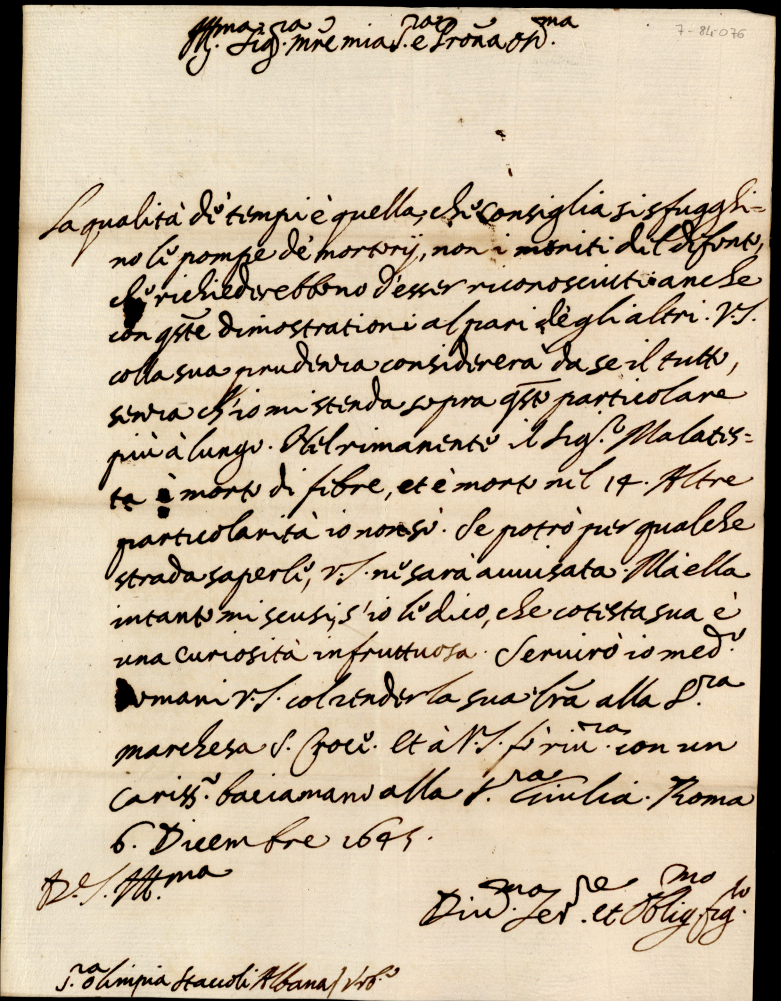 Ill.ma Sig.ra mrē mia S.ra e Prōna oss.ma
7-84-076
La qualità de' tempi è quella, che consiglia si sfugghi=
no le pompe de' mortorij, non i meriti del difonto,
che richiederebbono d'esser riconosciuti anche
con qste dimostrationi al pari degli altri. V.S.
colla sua prudenza considererà da se il tutto,
senza ch'io mi stenda sopra qsto particolare
più à lungo. Nel rimanente il Sig.r Malatis=
ta è morto di febre, et è morto nel 14. Altre
particolarità io non sò. Se potrò per qualche
strada saperle, V.S. ne sarà auuisata. Ma ella
intanto mi scusi, s'io le dico, che cotesta sua è
una curiosità infruttuosa. Seruirò io med.o
domani V.S. col render la sua lrā alla S.ra
marchesa S. Croce. Et à V.S. fò riu.za con un
cariss.o baciamano alla S.ra Giulia. Roma
6. Dicembre 1645.
D. V.S. Ill.ma
Diu.ma Ser.re et Oblig.mo fig.lo
S.ra Olimpia Staccoli Albana / Urb.o